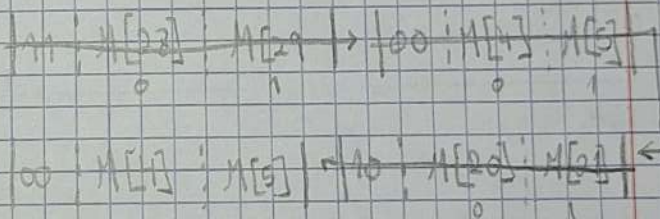 11 M[28] M[29 → 00 M[4] M[5]
0 1 0 1
00 M[4] M[5] 10 M[20] M[21] ←
0 1